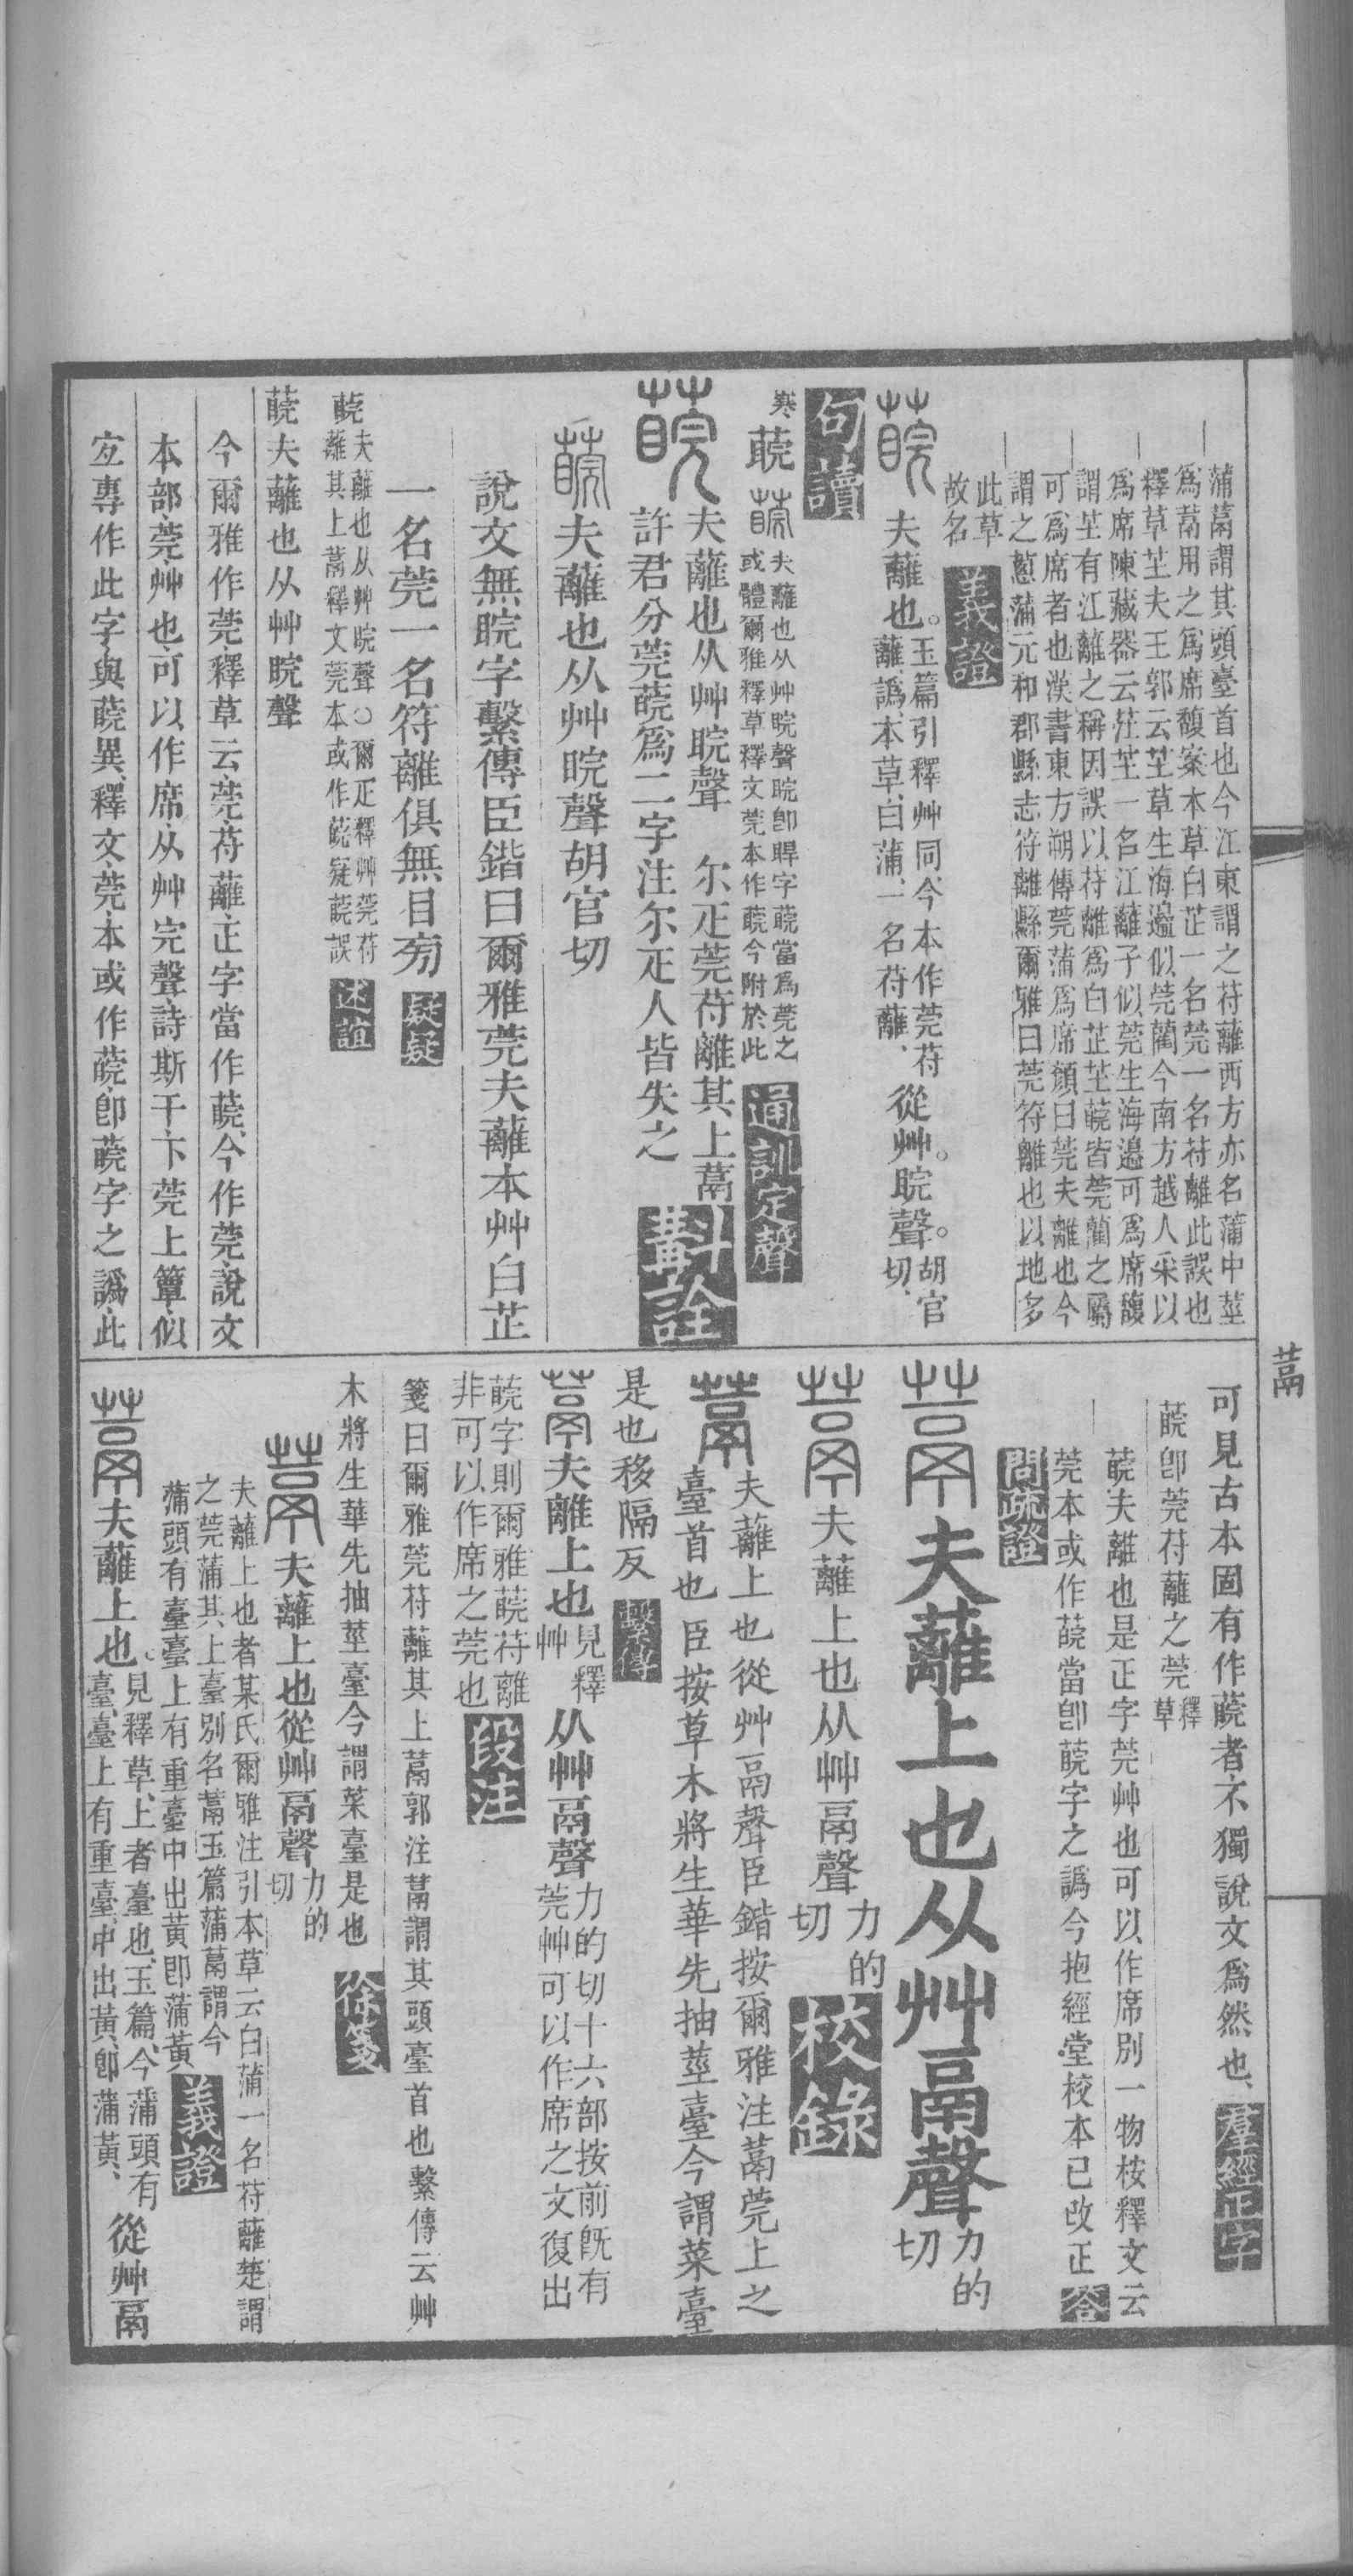 蒲蒚謂其頭臺首也今江東謂之苻蘺西方亦名蒲中莖
爲蒚用之爲席馥案本草白芷一名莞一名苻離此誤也
釋草芏夫王郭云芏草生海邊似莞藺今南方越人采以
爲席陳藏器云茳芏一名江蘺子似莞生海邉可爲席馥
謂芏有江蘺之稱因誤以苻離爲白芷芏䕠皆莞藺之屬
可爲席者也漢書東方朔傳莞蒲爲席顏曰莞夫離也今
謂之蔥蒲元和郡縣志符離縣爾雅曰莞符離也以地多
此草
故名
義證
夫蘺也。玉篇引釋艸同、今本作莞苻
蘺、譌、本草、白蒲、一名苻蘺、
從艸。睆聲。胡官
切、
句讀
寒 䕠
夫蘺也从艸睆聲睆卽睅字䕠當爲莞之
或體爾雅釋草釋文莞本作䕠今附於此
通訓定聲
夫蘺也从艸睆聲 尒疋莞苻離其上蒚
許君分莞䕠爲二字注尒疋人皆失之
斠詮
夫蘺也从艸睆聲胡官切
說文無睆字繫傳臣鍇曰爾雅莞夫蘺本艸白芷
一名莞一名符離俱無目旁
疑疑
䕠夫蘺也从艸睆聲〇爾疋釋艸莞苻
蘺其上蒚釋文莞本或作䕠疑䕠誤
述誼
䕠夫蘺也从艸睆聲
今爾雅作莞、釋草云、莞苻蘺、正字當作䕠、今作莞、說文
本部、莞、艸也、可以作席、从艸完聲、詩斯干、下莞上簟、似
宜專作此字、與䕠異、釋文、莞、本或作䕠、卽䕠字之譌、此
蒚
可見古本固有作䕠者、不獨說文爲然也、
羣經正字
䕠卽莞苻蘺之莞釋
草
䕠夫離也是正字莞艸也可以作席別一物桉釋文云
莞本或作䕠當卽䕠字之譌今抱經堂校本已改正
答
問疏證
夫蘺上也从艸鬲聲力的
切
夫蘺上也从艸鬲聲力的
切
校錄
夫蘺上也從艸鬲聲臣鍇按爾雅注蒚莞上之
臺首也 臣按草木將生華先抽莖臺今謂菜臺
是也移隔反
繫傳
夫離上也見釋
艸
从艸鬲聲力的切十六部按前旣有
莞艸可以作席之文復出
䕠字則爾雅䕠苻離
非可以作席之莞也
段注
箋曰爾雅莞苻蘺其上蒚郭注蒚謂其頭臺首也繫傳云艸
木將生華先抽莖臺今謂菜臺是也
徐箋
夫蘺上也從艸鬲聲力的
切
夫蘺上也者某氏爾雅注引本草云白蒲一名苻蘺楚謂
之莞蒲其上臺別名蒚玉篇蒲蒚謂今
蒲頭有臺臺上有重臺中出黃即蒲黃
義證
夫蘺上也、見釋草、上者臺也、玉篇、今蒲頭有
臺、臺上有重臺、中出黃、卽蒲黃、
從艸鬲